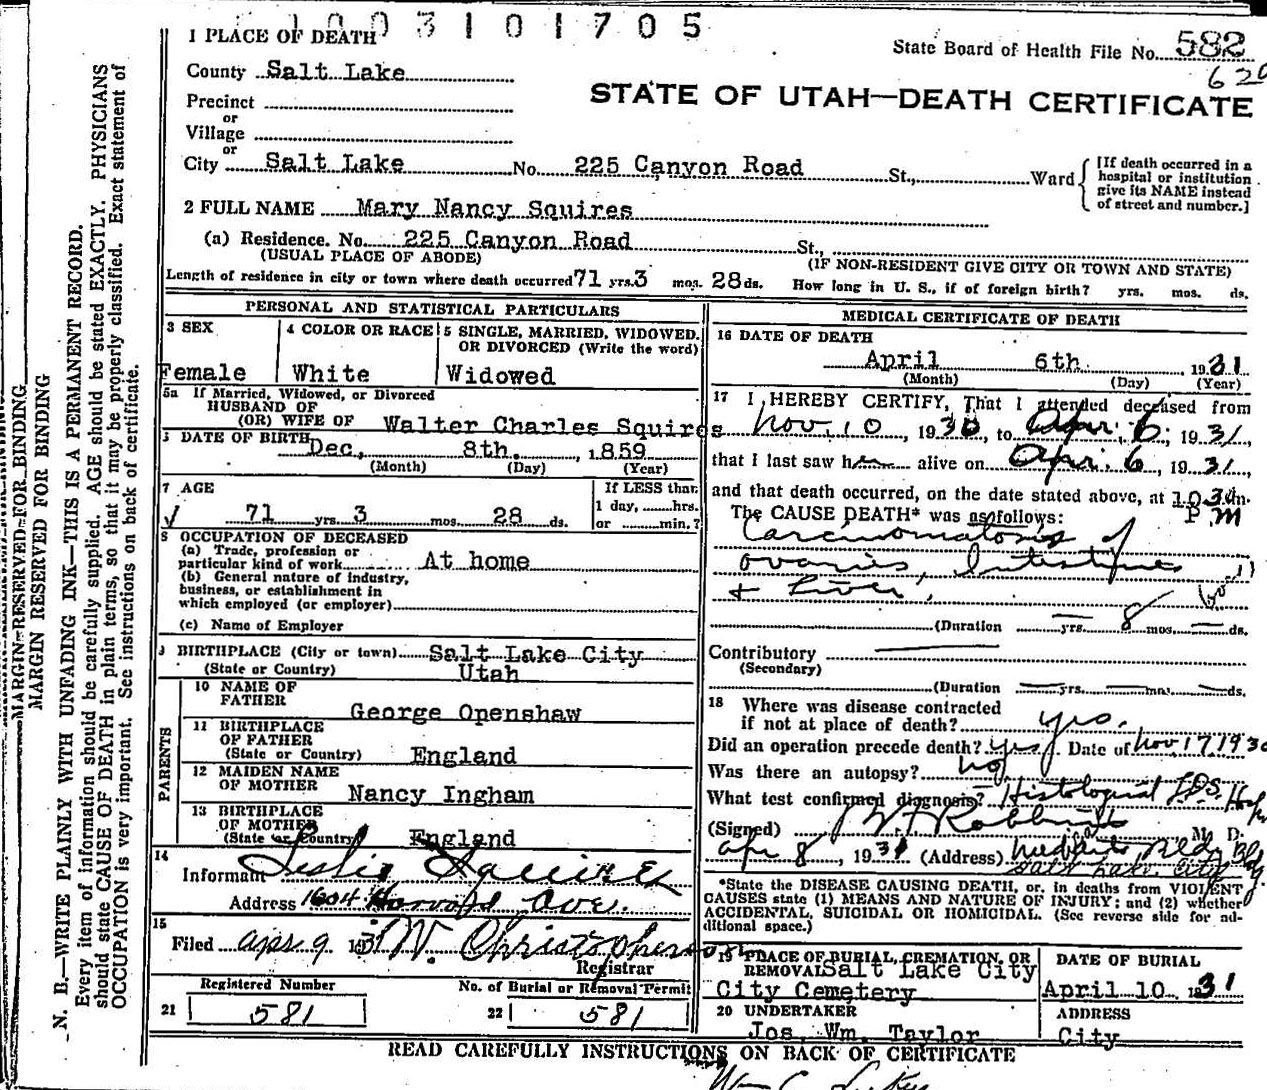 1003101705
1 PLACE OF DEATH
State Board of Health File No. 582
620
County Salt Lake
STATE OF UTAH—DEATH CERTIFICATE
Precinct
or
Village
or
City Salt Lake No. 225 Canyon Road St., Ward
[If death occurred in a
hospital or institution
give its NAME instead
of street and number.]
2 FULL NAME Mary Nancy Squires
(a) Residence. No. 225 Canyon Road St.,
(USUAL PLACE OF ABODE)
(IF NON-RESIDENT GIVE CITY OR TOWN AND STATE)
Length of residence in city or town where death occurred 71 yrs. 3 mos. 28 ds. How long in U. S., if of foreign birth? yrs. mos. ds.
PERSONAL AND STATISTICAL PARTICULARS
3 SEX
Female
4 COLOR OR RACE
White
5 SINGLE, MARRIED, WIDOWED,
OR DIVORCED (Write the word)
Widowed
5a If Married, Widowed, or Divorced
HUSBAND OF
(OR) WIFE OF Walter Charles Squires
DATE OF BIRTH Dec. 8th. , 1859
(Month) (Day) (Year)
7 AGE
71 yrs. 3 mos. 28 ds.
If LESS than
1 day, hrs.
or min.?
8 OCCUPATION OF DECEASED
(a) Trade, profession or
particular kind of work At home
(b) General nature of industry,
business, or establishment in
which employed (or employer)
(c) Name of Employer
9 BIRTHPLACE (City or town) Salt Lake City
(State or Country) Utah
PARENTS
10 NAME OF
FATHER
George Openshaw
11 BIRTHPLACE
OF FATHER
(State or Country) England
12 MAIDEN NAME
OF MOTHER Nancy Ingham
13 BIRTHPLACE
OF MOTHER
(State or Country) England
14
Informant Leslie Squires
Address 1604 Harvard Ave.
15
Filed apr 9 1931 W. Christopherson
Registrar
Registered Number
21 581
No. of Burial or Removal Permit
22 581
MEDICAL CERTIFICATE OF DEATH
16 DATE OF DEATH
April 6th. 1931
(Month) (Day) (Year)
17 I HEREBY CERTIFY, That I attended deceased from
Nov. 10, 1930, to Apr. 6, 1931,
that I last saw her alive on Apr. 6, 1931,
and that death occurred, on the date stated above, at 1030 m.
P.m
The CAUSE DEATH* was as follows:
Carcinomatosis of
ovaries, Intestines
+ Liver,
(Duration — yrs. 8 mos. — ds.
Contributory
(Secondary)
(Duration — yrs. — mos. — ds.
18 Where was disease contracted
if not at place of death? yes.
Did an operation precede death? yes Date of Nov 17 1930
Was there an autopsy? no
What test confirmed diagnosis? Histologist L.D.S. Hosp
(Signed) M. D.
Apr 8, 1931 (Address) Bldg
Salt Lake City
*State the DISEASE CAUSING DEATH, or, in deaths from VIOLENT
CAUSES state (1) MEANS AND NATURE OF INJURY; and (2) whether
ACCIDENTAL, SUICIDAL OR HOMICIDAL. (See reverse side for ad-
ditional space.)
19 PLACE OF BURIAL, CREMATION, OR
REMOVAL Salt Lake City
City Cemetery
DATE OF BURIAL
April 10 1931
20 UNDERTAKER
Jos. Wm. Taylor
ADDRESS
City
READ CAREFULLY INSTRUCTIONS ON BACK OF CERTIFICATE
MARGIN RESERVED FOR BINDING
MARGIN RESERVED FOR BINDING
N. B.—WRITE PLAINLY WITH UNFADING INK—THIS IS A PERMANENT RECORD.
Every item of information should be carefully supplied. AGE should be stated EXACTLY. PHYSICIANS
should state CAUSE OF DEATH in plain terms, so that it may be properly classified. Exact statement of
OCCUPATION is very important. See instructions on back of certificate.